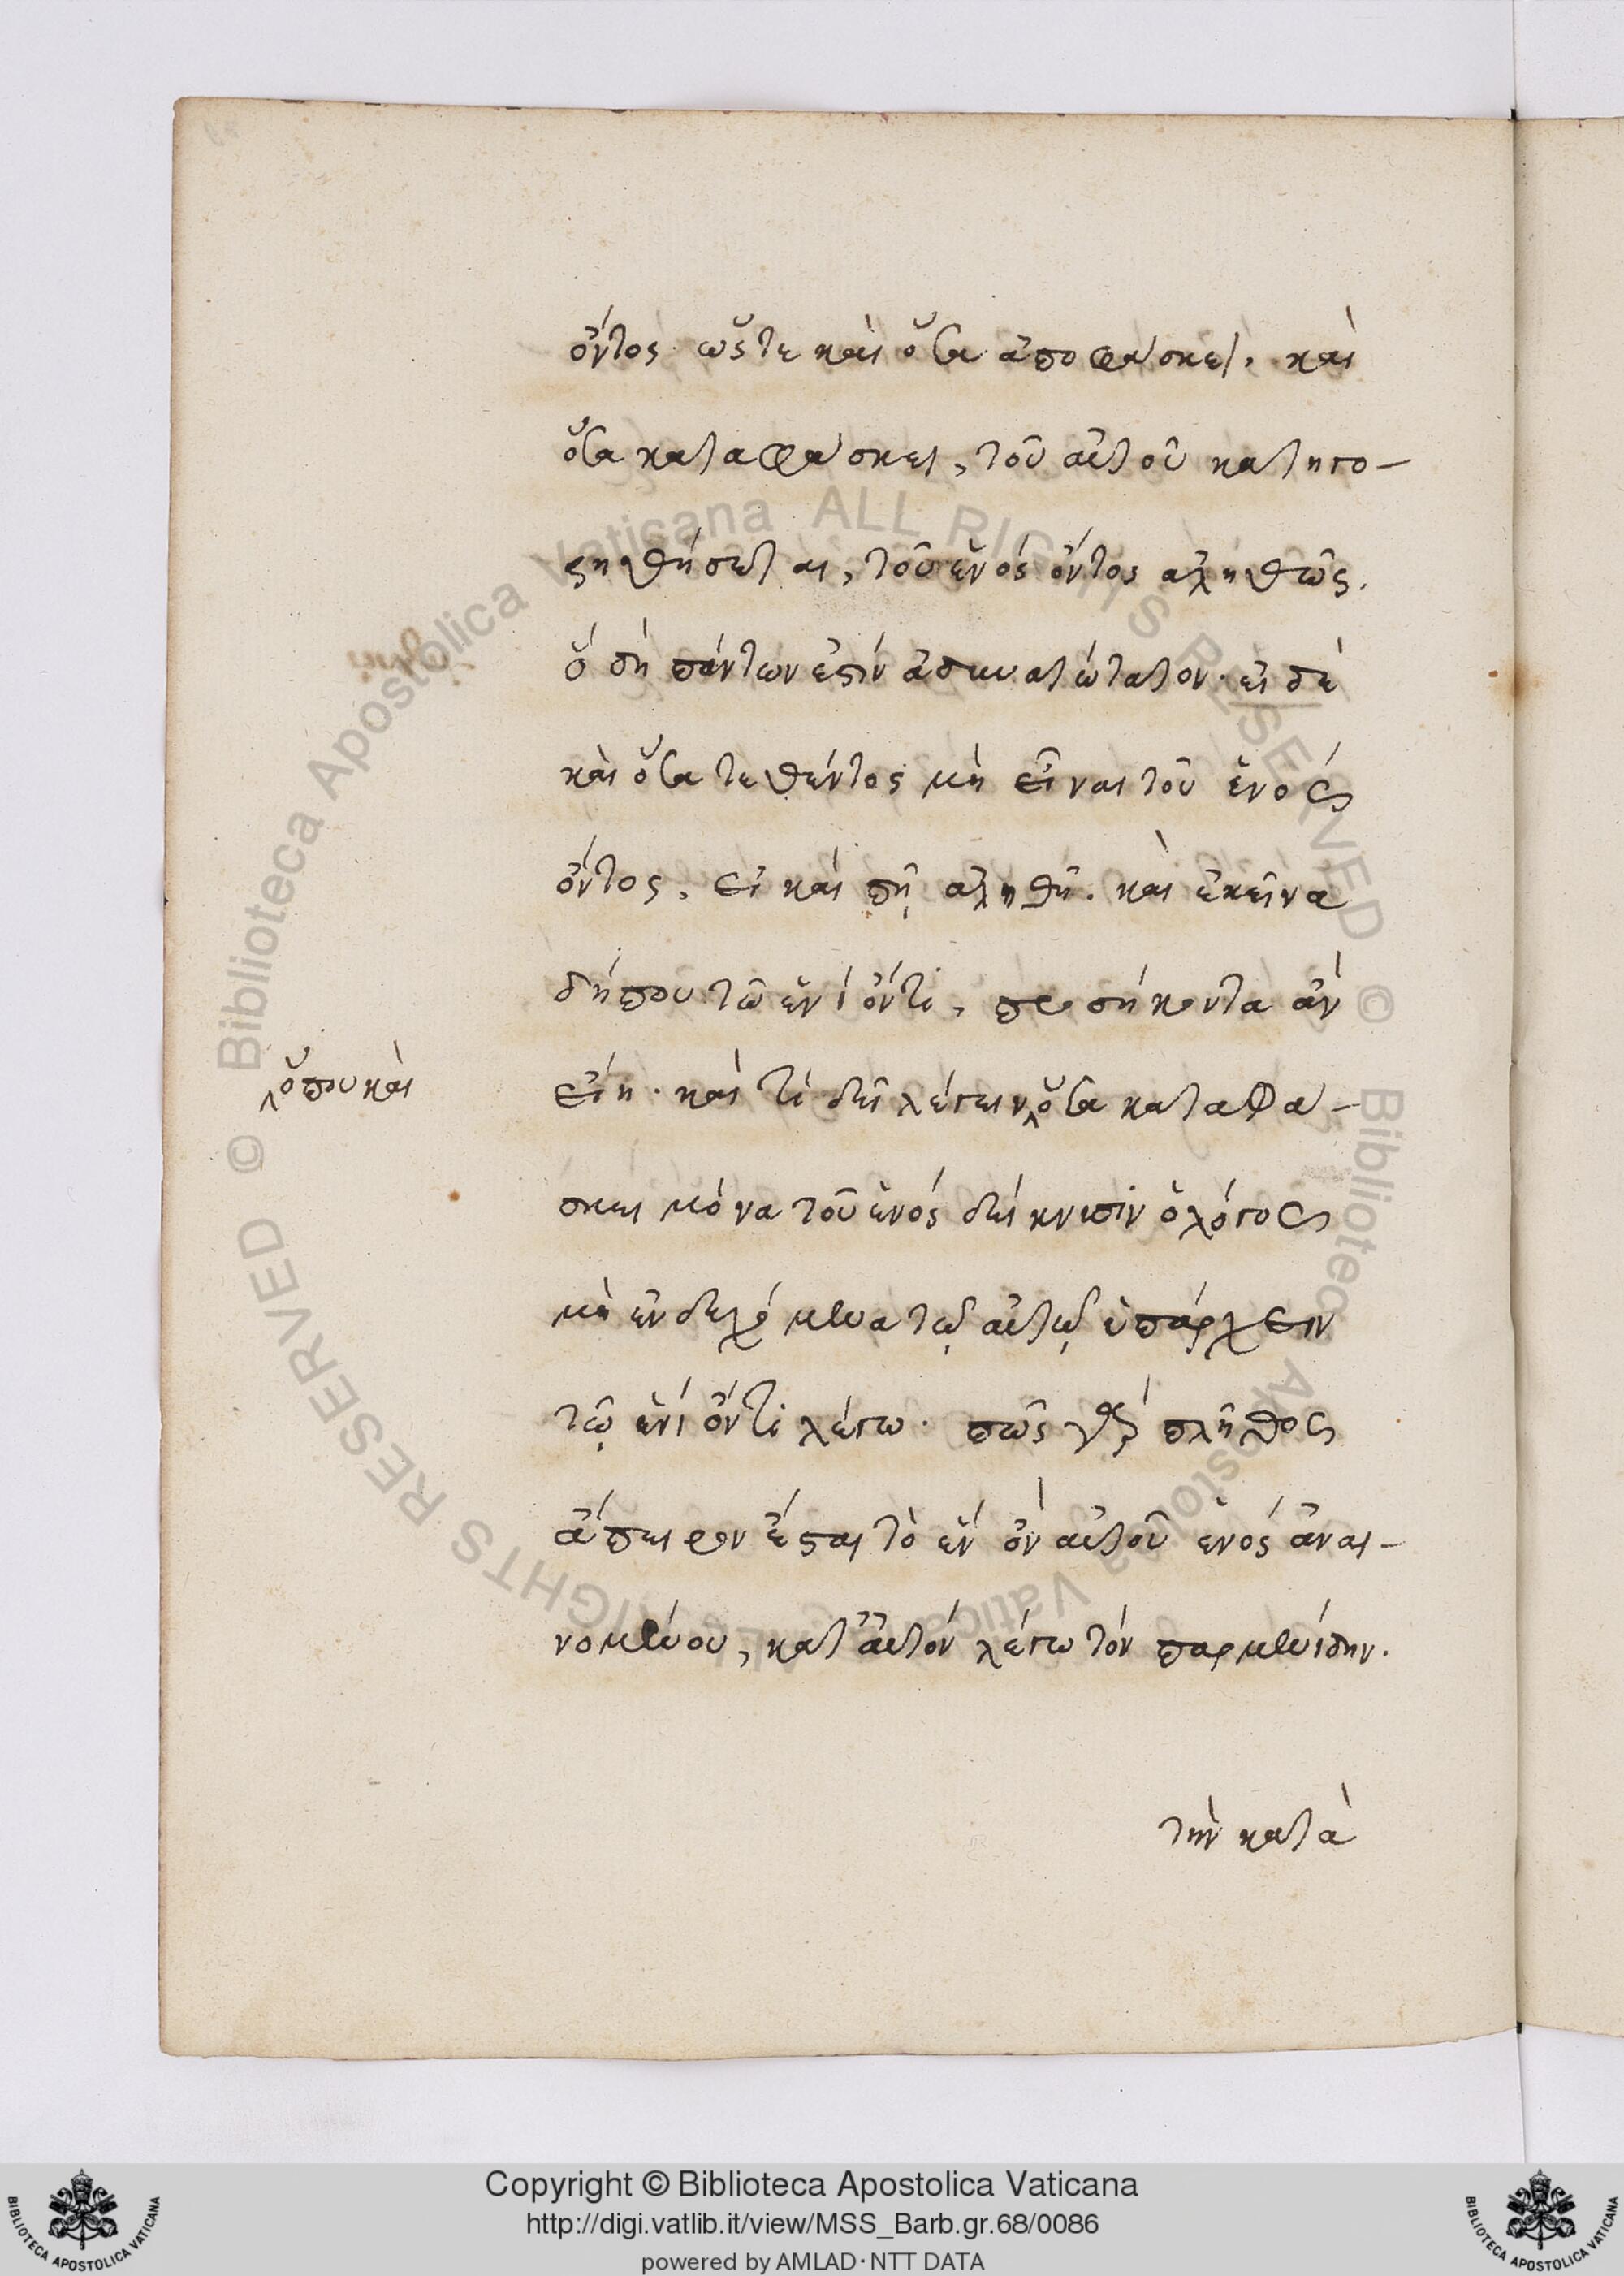 ὄντος. ὥστε καὶ ὅσα ἀποφάσκει, καὶ
ὅσα καταφάσκει, τοῦ αὐτοῦ κατηγο-
ρηθήσεται, τοῦ ἑνὸς ὄντος ἀληθῶς.
ὃ δὴ πάντων ἐστὶν ἀδυνατώτατον. εἰ δὲ
καὶ ὅσα τεθέντος μὴ εἶναι τοῦ ἑνὸς
ὄντος, εἰ καὶ πῇ ἀληθῆ. καὶ ἐκεῖνα
δήπου τῶ ἑνὶ ὄντι, προσήκοντα ἂν
εἴη. καὶ τί δεῖ λέγειν ὅσα καταφά-
ὅπου καὶ
σκει μόνα τοῦ ἑνὸς δείκνυσιν ὁ λόγος
μὴ ἐνδεχόμενα τῷ αὐτῷ ὑπάρχειν
τῷ ἑνὶ ὄντι λέγω. πῶς γὰρ πλῆθος
ἄπειρον ἔσται τὸ ἓν ὂν αὐτοῦ ἑνὸς ἀναι-
νομένου, κατ' αὐτὸν λέγω τὸν παρμενίδην.
τὴν κατὰ
Copyright © Biblioteca Apostolica Vaticana
http://digi.vatlib.it/view/MSS_Barb.gr.68/0086
powered by AMLAD·NTT DATA
BIBLIOTECA APOSTOLICA VATICANA
BIBLIOTECA APOSTOLICA VATICANA
© Biblioteca Apostolica Vaticana ALL RIGHTS RESERVED
© Biblioteca Apostolica Vaticana ALL RIGHTS RESERVED